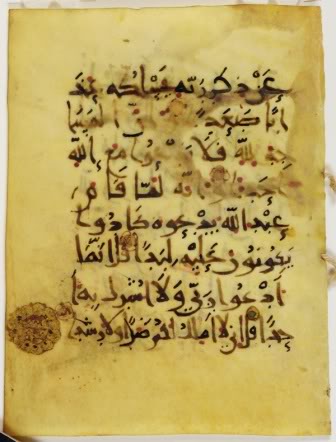 عن ذكر ربه يسلكه عذ
ابا صعدا وان المسا
جد لله فلا تدعوا مع الله
احدا وانه لما قام
عبد الله يدعوه كادوا
يكونون عليه لبدا قل انما
ادعوا ربي ولا اشرك به ا
حدا قل اني لا املك لكم ضرا ولا رشدا